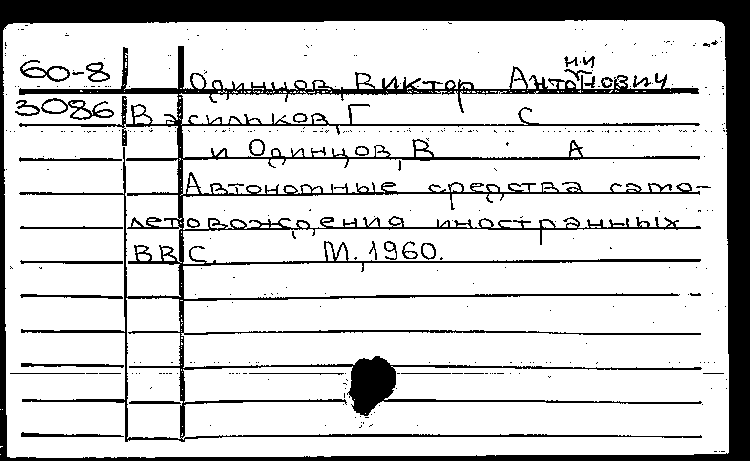 60-8 Одинцов, Виктор Антонович
ни
3086 Васильков, Г С
и Одинцов, В А
Автономные средства само-
летовождения иностранных
ВВС. М., 1960.